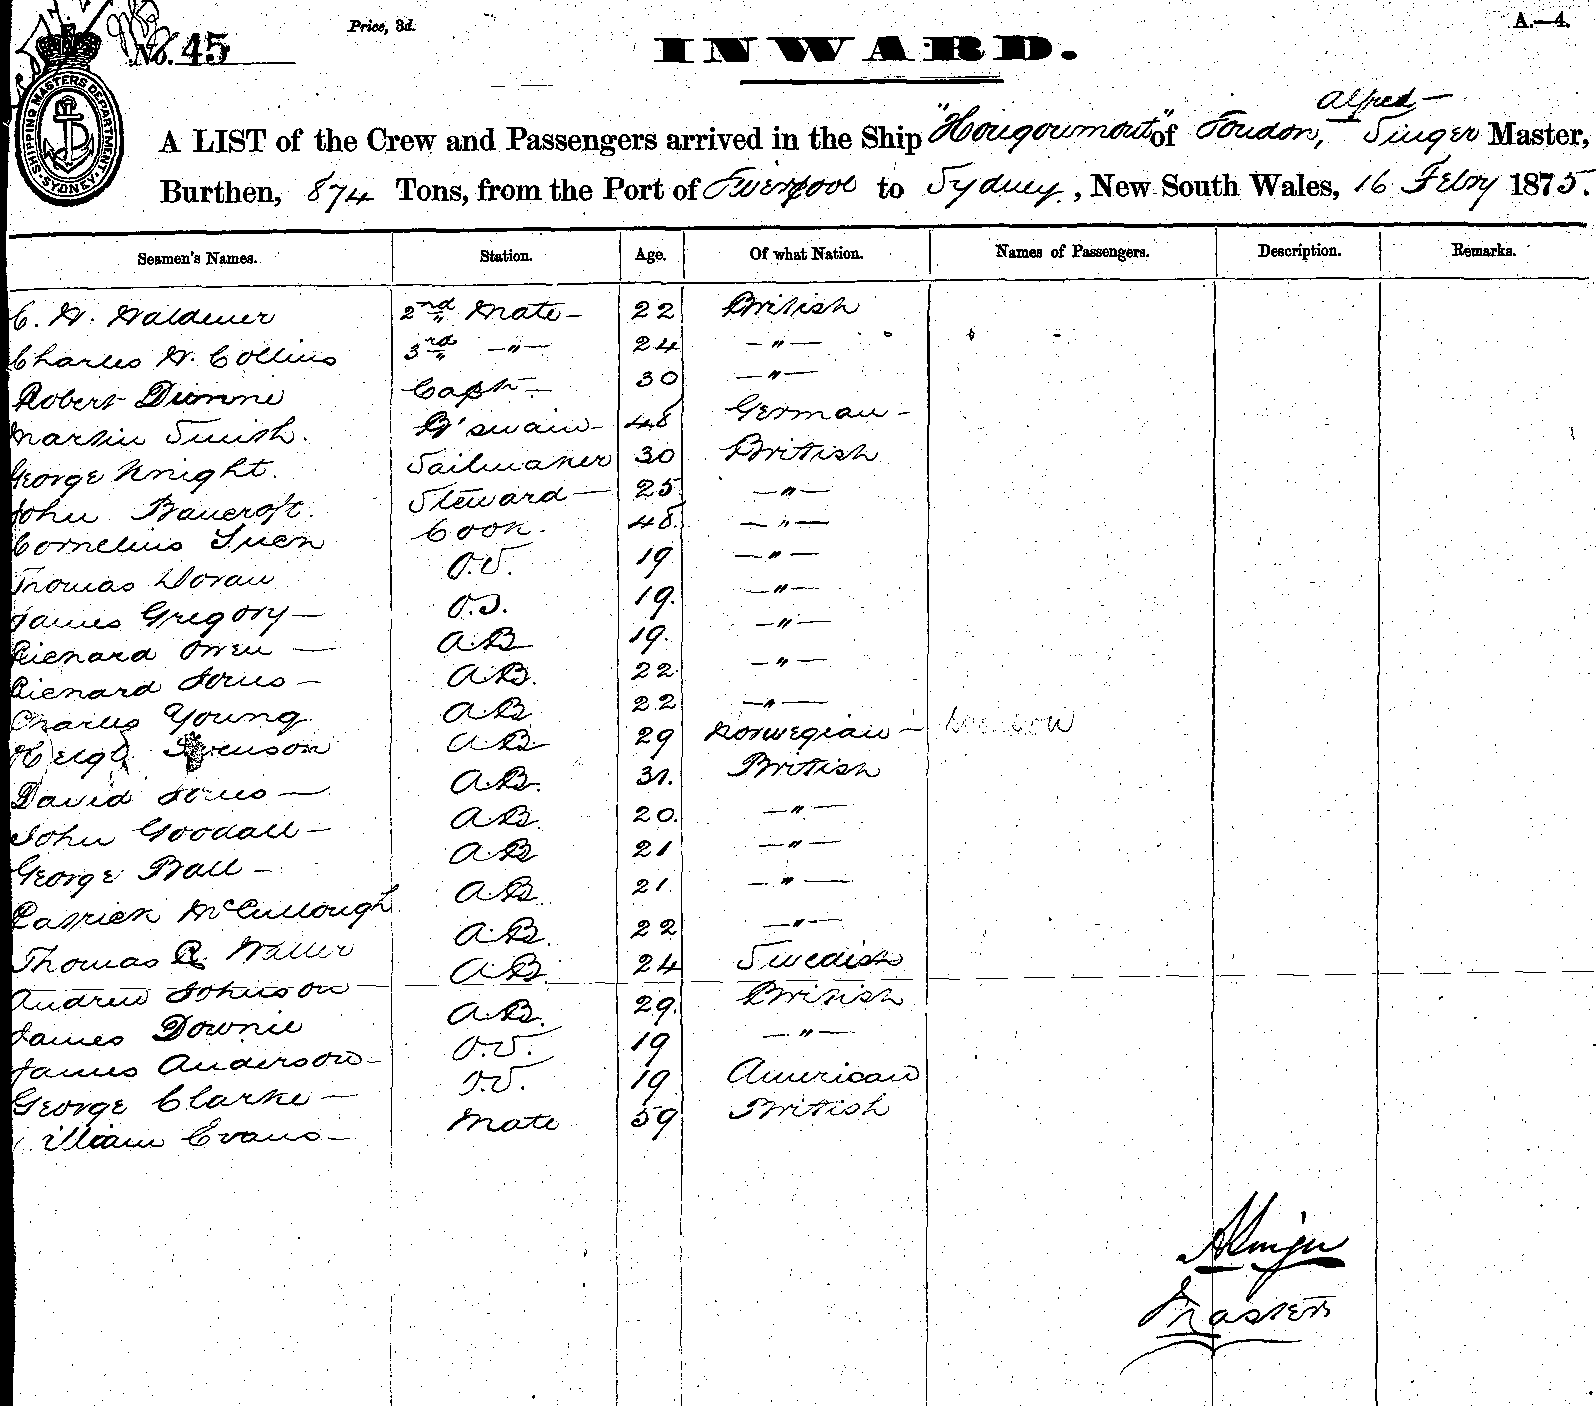 No. 45
Price, 3d.
A.—4.
INWARD.
SHIPPING MASTERS DEPARTMENT SYDNEY
Alfred —
A LIST of the Crew and Passengers arrived in the Ship "Hougoumont" of London, Singer Master,
Burthen, 874 Tons, from the Port of Liverpool to Sydney, New South Wales, 16 Febry 1875.
Seamen's Names. Station. Age. Of what Nation. Names of Passengers. Description. Remarks.
C. W. 2nd Mate – 22 British
Charles W. Collins 3rd —"— 24 —"—
Robert Carp 30 —"—
Martin Smith. B'swain – 48 German –
George Knight. Sailmaker 30 British
John Bancroft. Steward — 25 —"—
Cornelius Cook. 48 —"—
Thomas Doran O.S. 19 —"—
James Gregory — O.S. 19. —"—
Richard Owen — A.B 19. —"—
Richard Jones — A.B. 22 —"—
Charles Young A.B 22 —"—
Svenson A.B 29 Norwegian –
David Jones — A.B. 31. British
John Goodall – A.B. 20. —"—
George Ball – A.B 21 —"—
Patrick McCullough A.B. 21 —"—
Thomas R. Waller A.B. 22 —"—
Andrew Johnson — A.B. 24 Swedish
James Downie A.B. 29. British
James Anderson – O.S. 19 —"—
George Clarke — O.S. 19 American
William Evans – Mate 59 British
A Singer
Master